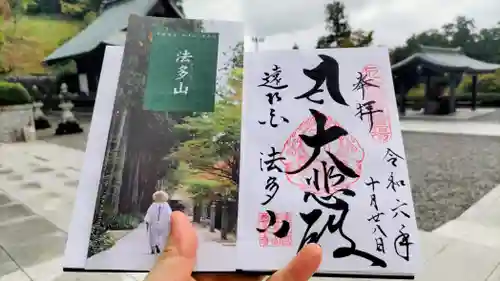 法多山
奉拝
令和六年
十月廿八日
大悲殿
遠州 法多山